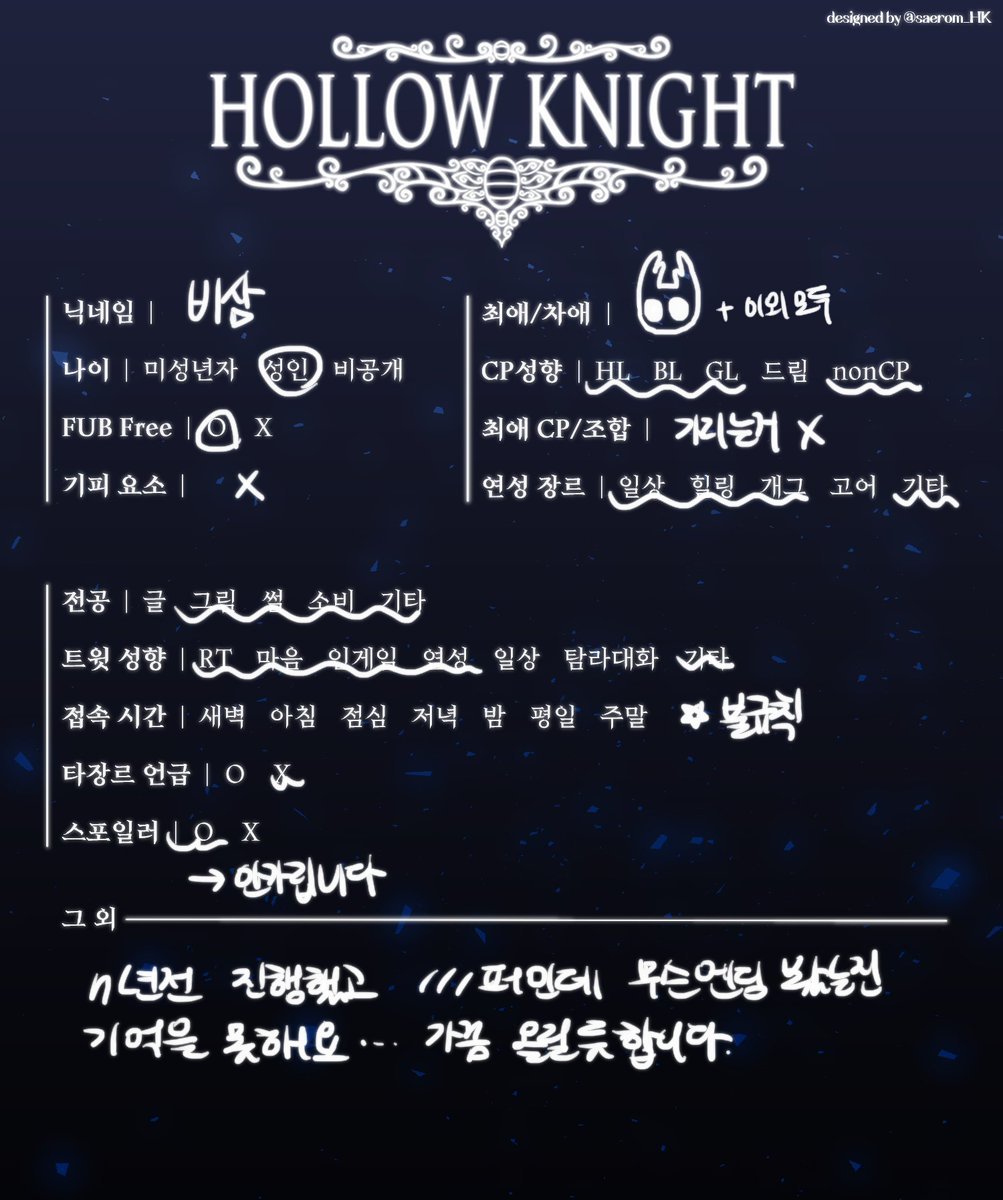 designed by @saerom_HK
HOLLOW KNIGHT
닉네임 | 비삼
나이 | 미성년자 성인 비공개
FUB Free | O X
기피 요소 | X
최애/차애 | + 이외 모두
CP성향 | HL BL GL 드림 nonCP
최애 CP/조합 | 가리는거 X
연성 장르 | 일상 힐링 개그 고어 기타
전공 | 글 그림 썰 소비 기타
트윗 성향 | RT 마음 인게임 연성 일상 탐라대화 기타
접속 시간 | 새벽 아침 점심 저녁 밤 평일 주말 ☆ 불규칙
타장르 언급 | O X
스포일러 | O X
→ 안가립니다
그 외
n년전 진행했고 111퍼인데 무슨엔딩 봤는진
기억을 못해요... 가끔 올릴듯합니다.